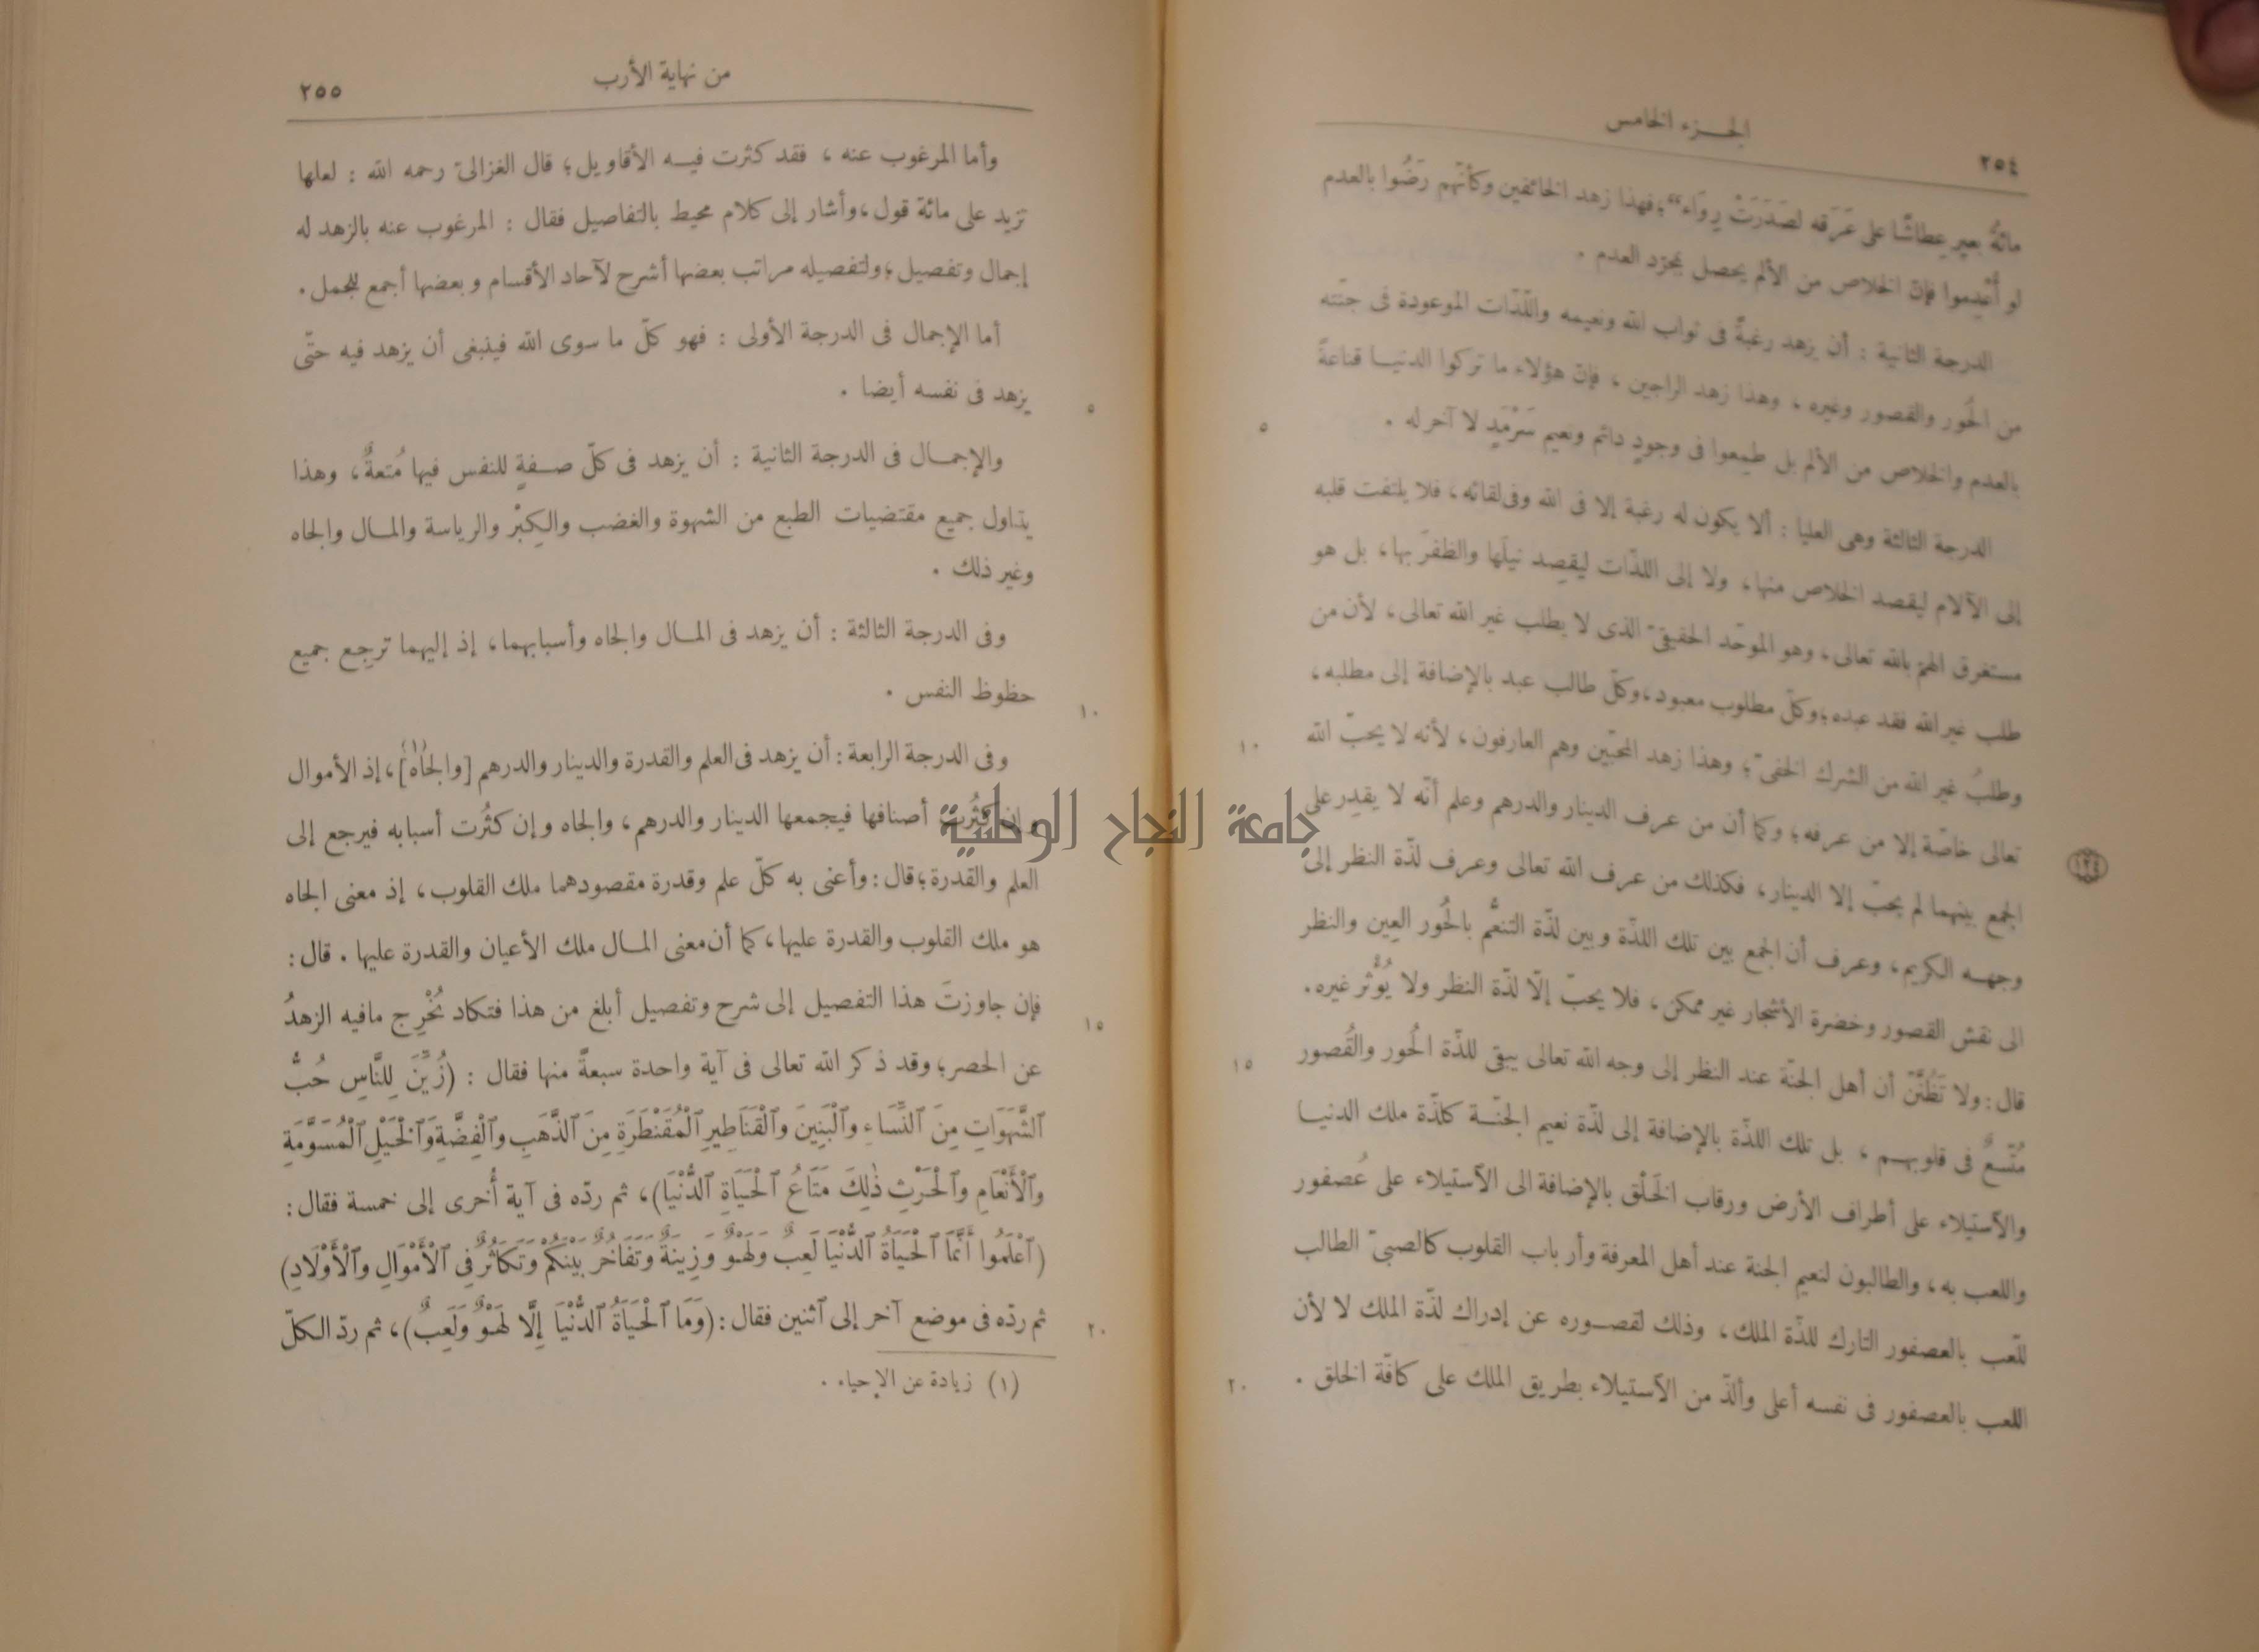 ٢٥٤
الجزء الخامس
مائةُ بعيرٍ عِطاشًا على عَرَقه لصَدَرَتْ رِوَاء“؛ فهذا زهد الخائفين وكأنّهم رَضُوا بالعدم
لو أُعْدِموا فإن الخلاص من الألم يحصل بمجرّد العدم .
الدرجة الثانية : أن يزهد رغبةً فى ثواب الله ونعيمه واللّذات الموعودة فى جنّته
من الحُور والقصور وغيره ، وهذا زهد الراجين ، فإن هؤلاء ما تركوا الدنيا قناعةً
بالعدم والخلاص من الألم بل طمِعوا فى وجودٍ دائم ونعيم سَرْمَدٍ لا آخر له .
٥
الدرجة الثالثة وهى العليا : ألا يكون له رغبة إلا فى الله وفى لقائه ، فلا يلتفت قلبه
إلى الآلام ليقصد الخلاص منها ، ولا إلى اللذّات ليقصِد نيلَها والظفرَ بها ، بل هو
مستغرق الهمّ بالله تعالى ، وهو الموحّد الحقيقىّ الذى لا يطلب غير الله تعالى ، لأن من
طلب غير الله فقد عبده ؛ وكلّ مطلوب معبود ، وكلّ طالب عبد بالإضافة إلى مطلبه ،
وطلبُ غير الله من الشرك الخفىّ ؛ وهذا زهد المحبّين وهم العارفون ، لأنه لا يحبّ الله
١٠
تعالى خاصّة إلا من عرفه ؛ وكما أن من عرف الدينار والدرهم وعلم أنّه لا يقدِر على
الجمع بينهما لم يحبّ إلا الدينار ، فكذلك من عرف الله تعالى وعرف لذّة النظر إلى
وجهه الكريم ، وعرف أن الجمع بين تلك اللذّة وبين لذّة التنعُّم بالحُور العِين والنظر
الى نقش القصور وخضرة الأشجار غير ممكن ، فلا يحبّ إلّا لذّة النظر ولا يُؤْثر غيره .
قال : ولا تَظُنَّنّ أن أهل الجنّة عند النظر إلى وجه الله تعالى يبقى للذّة الحُور والقُصور
١٥
مُتّسعٌ فى قلوبهم ، بل تلك اللذّة بالإضافة إلى لذّة نعيم الجنّة كلذّة ملك الدنيا
والاستيلاء على أطراف الأرض ورقاب الخَلْق بالإضافة الى الاستيلاء على عُصفور
واللعب به ، والطالبون لنعيم الجنة عند أهل المعرفة وأرباب القلوب كالصبىّ الطالب
للّعب بالعصفور التارك للذّة الملك ، وذلك لقصوره عن إدراك لذّة الملك لا لأن
اللعب بالعصفور فى نفسه أعلى وألذّ من الاستيلاء بطريق الملك على كافّة الخلق .
٢٠
من نهاية الأرب
٢٥٥
وأما المرغوب عنه ، فقد كثرت فيه الأقاويل ؛ قال الغزالىّ رحمه الله : لعلها
تزيد على مائة قول ، وأشار إلى كلام محيط بالتفاصيل فقال : المرغوب عنه بالزهد له
إجمال وتفصيل ؛ ولتفصيله مراتب بعضها أشرح لآحاد الأقسام وبعضها أجمع للجمل .
أما الإجمال فى الدرجة الأولى : فهو كلّ ما سوى الله فينبغى أن يزهد فيه حتّى
يزهد فى نفسه أيضا .
٥
والإجمال فى الدرجة الثانية : أن يزهد فى كلّ صفةٍ للنفس فيها مُتعةٌ ، وهذا
يتناول جميع مقتضيات الطبع من الشهوة والغضب والكِبْر والرياسة والمال والجاه
وغير ذلك .
وفى الدرجة الثالثة : أن يزهد فى المال والجاه وأسبابهما ، إذ إليهما ترجِع جميع
حظوظ النفس .
١٠
وفى الدرجة الرابعة : أن يزهد فى العلم والقدرة والدينار والدرهم [والجاه](١) ، إذ الأموال
وإن كثُرت أصنافها فيجمعها الدينار والدرهم ، والجاه وإن كثُرت أسبابه فيرجع إلى
العلم والقدرة ؛ قال : وأعنى به كلّ علم وقدرة مقصودهما ملك القلوب ، إذ معنى الجاه
هو ملك القلوب والقدرة عليها ، كما أن معنى المال ملك الأعيان والقدرة عليها . قال :
فإن جاوزتَ هذا التفصيل إلى شرح وتفصيل أبلغ من هذا فتكاد تُخْرِج مافيه الزهدُ
١٥
عن الحصر ؛ وقد ذكر الله تعالى فى آية واحدة سبعةً منها فقال : (زُيِّنَ لِلنَّاسِ حُبُّ
ٱلشَّهَوَاتِ مِنَ ٱلنِّسَاءِ وَٱلْبَنِينَ وَٱلْقَنَاطِيرِ ٱلْمُقَنْطَرَةِ مِنَ ٱلذَّهَبِ وَٱلْفِضَّةِ وَٱلْخَيْلِ ٱلْمُسَوَّمَةِ
وَٱلْأَنْعَامِ وَٱلْحَرْثِ ذٰلِكَ مَتَاعُ ٱلْحَيَاةِ ٱلدُّنْيَا) ، ثم ردّه فى آية أُخرى إلى خمسة فقال :
(ٱعْلَمُوا أَنَّمَا ٱلْحَيَاةُ ٱلدُّنْيَا لَعِبٌ وَلَهْوٌ وَزِينَةٌ وَتَفَاخُرٌ بَيْنَكُمْ وَتَكَاثُرٌ فِى ٱلْأَمْوَالِ وَٱلْأَوْلَادِ)
ثم ردّه فى موضع آخر إلى ٱثنين فقال : (وَمَا ٱلْحَيَاةُ ٱلدُّنْيَا إِلَّا لَهْوٌ وَلَعِبٌ) ، ثم ردّ الكلّ
٢٠
(١) زيادة عن الإحياء .
جامعة النجاح الوطنية